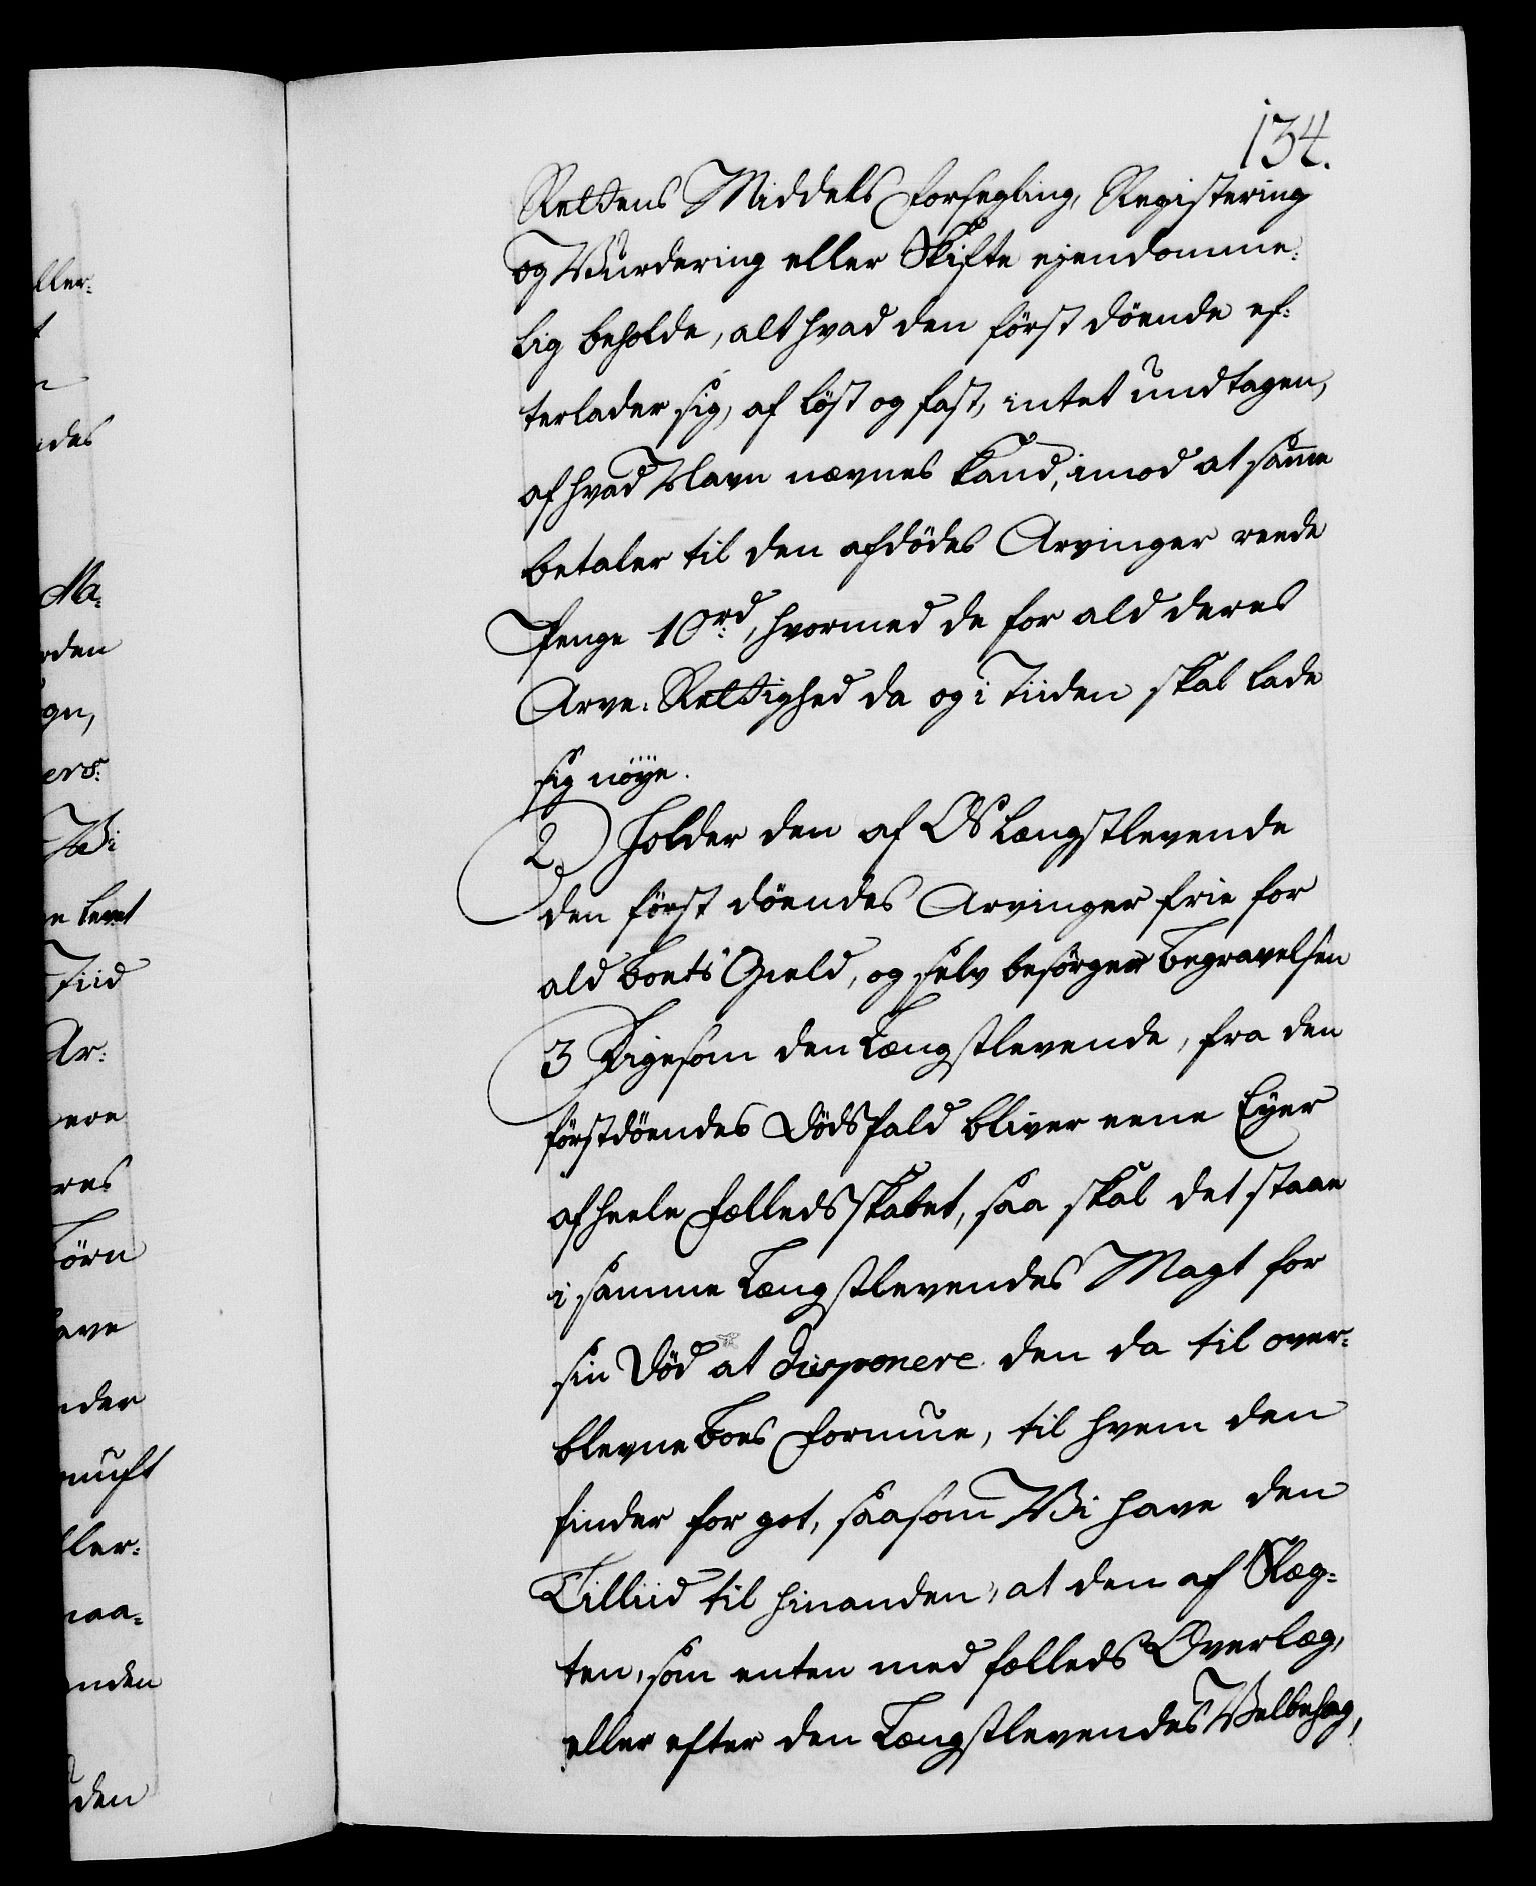 134.
Rettens Middels Forsegling, Registering
og Vurdering eller Skifte ejendomme-
lig beholde, alt hvad den först döende ef-
terlader sig, af löst og fast, intet undtagen,
af hvad Navn nævnes kand, imod at samme
betaler til den afdödes Arvinger reede
Penge 10rd, hvormed de for ald deres
Arve-Rettighed da og i Tiiden skal lade
sig nöye.
2) Holder den af Os Længstlevende
den först döendes Arvinger frie for
ald Boets Gield, og selv besörger Begravelsen
3 Ligesom den Længstlevende, fra den
förstdöendes Dödsfald bliver eene Eyer
af heele Fælledsskabet, saa skal det staae
i samme Længstlevendes Magt for
sin Död at disponere den da til over-
blevne Boes Formue, til hvem den
finder for got, saasom Vi have den
Tilliid til hinanden, at den af Slæg-
ten, som enten med fælleds Overlæg,
eller efter den Længstlevendes Velbehag,
ller-
t
n
ides
Ma-
rden
gn,
ers-
Vi
e levet
Tiid
Ar-
ere
res
Börn
have
nder
nuft
ller-
maa-
nden
den